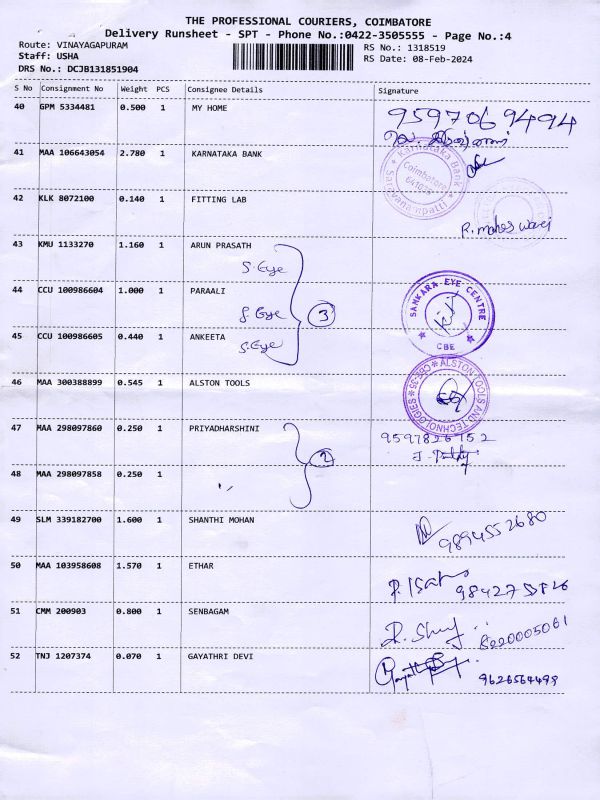 THE PROFESSIONAL COURIERS, COIMBATORE
Delivery Runsheet - SPT - Phone No.:0422-3505555 - Page No.:4
Route: VINAYAGAPURAM
Staff: USHA
DRS No.: DCJB131851904
RS No.: 1318519
RS Date: 08-Feb-2024
S No Consignment No Weight PCS Consignee Details Signature
40 GPM 5334481 0.500 1 MY HOME
9597069494
41 MAA 106643054 2.780 1 KARNATAKA BANK
Karnataka Bank
Coimbatore
Saravanampatti
42 KLK 8072100 0.140 1 FITTING LAB
43 KMU 1133270 1.160 1 ARUN PRASATH
S. Eye
44 CCU 100986604 1.000 1 PARAALI
S. Eye 3
45 CCU 100986605 0.440 1 ANKEETA
S. Eye
SANKARA EYE CENTRE
CBE
46 MAA 300388899 0.545 1 ALSTON TOOLS
ALSTON TOOLS AND TECHNOLOGIES
CBE-35
47 MAA 298097860 0.250 1 PRIYADHARSHINI
9597826752
2
48 MAA 298097858 0.250 1
〃
49 SLM 339182700 1.600 1 SHANTHI MOHAN
9894552680
50 MAA 103958608 1.570 1 ETHAR
51 CMM 200903 0.800 1 SENBAGAM
8220005061
52 TNJ 1207374 0.070 1 GAYATHRI DEVI
9626564499